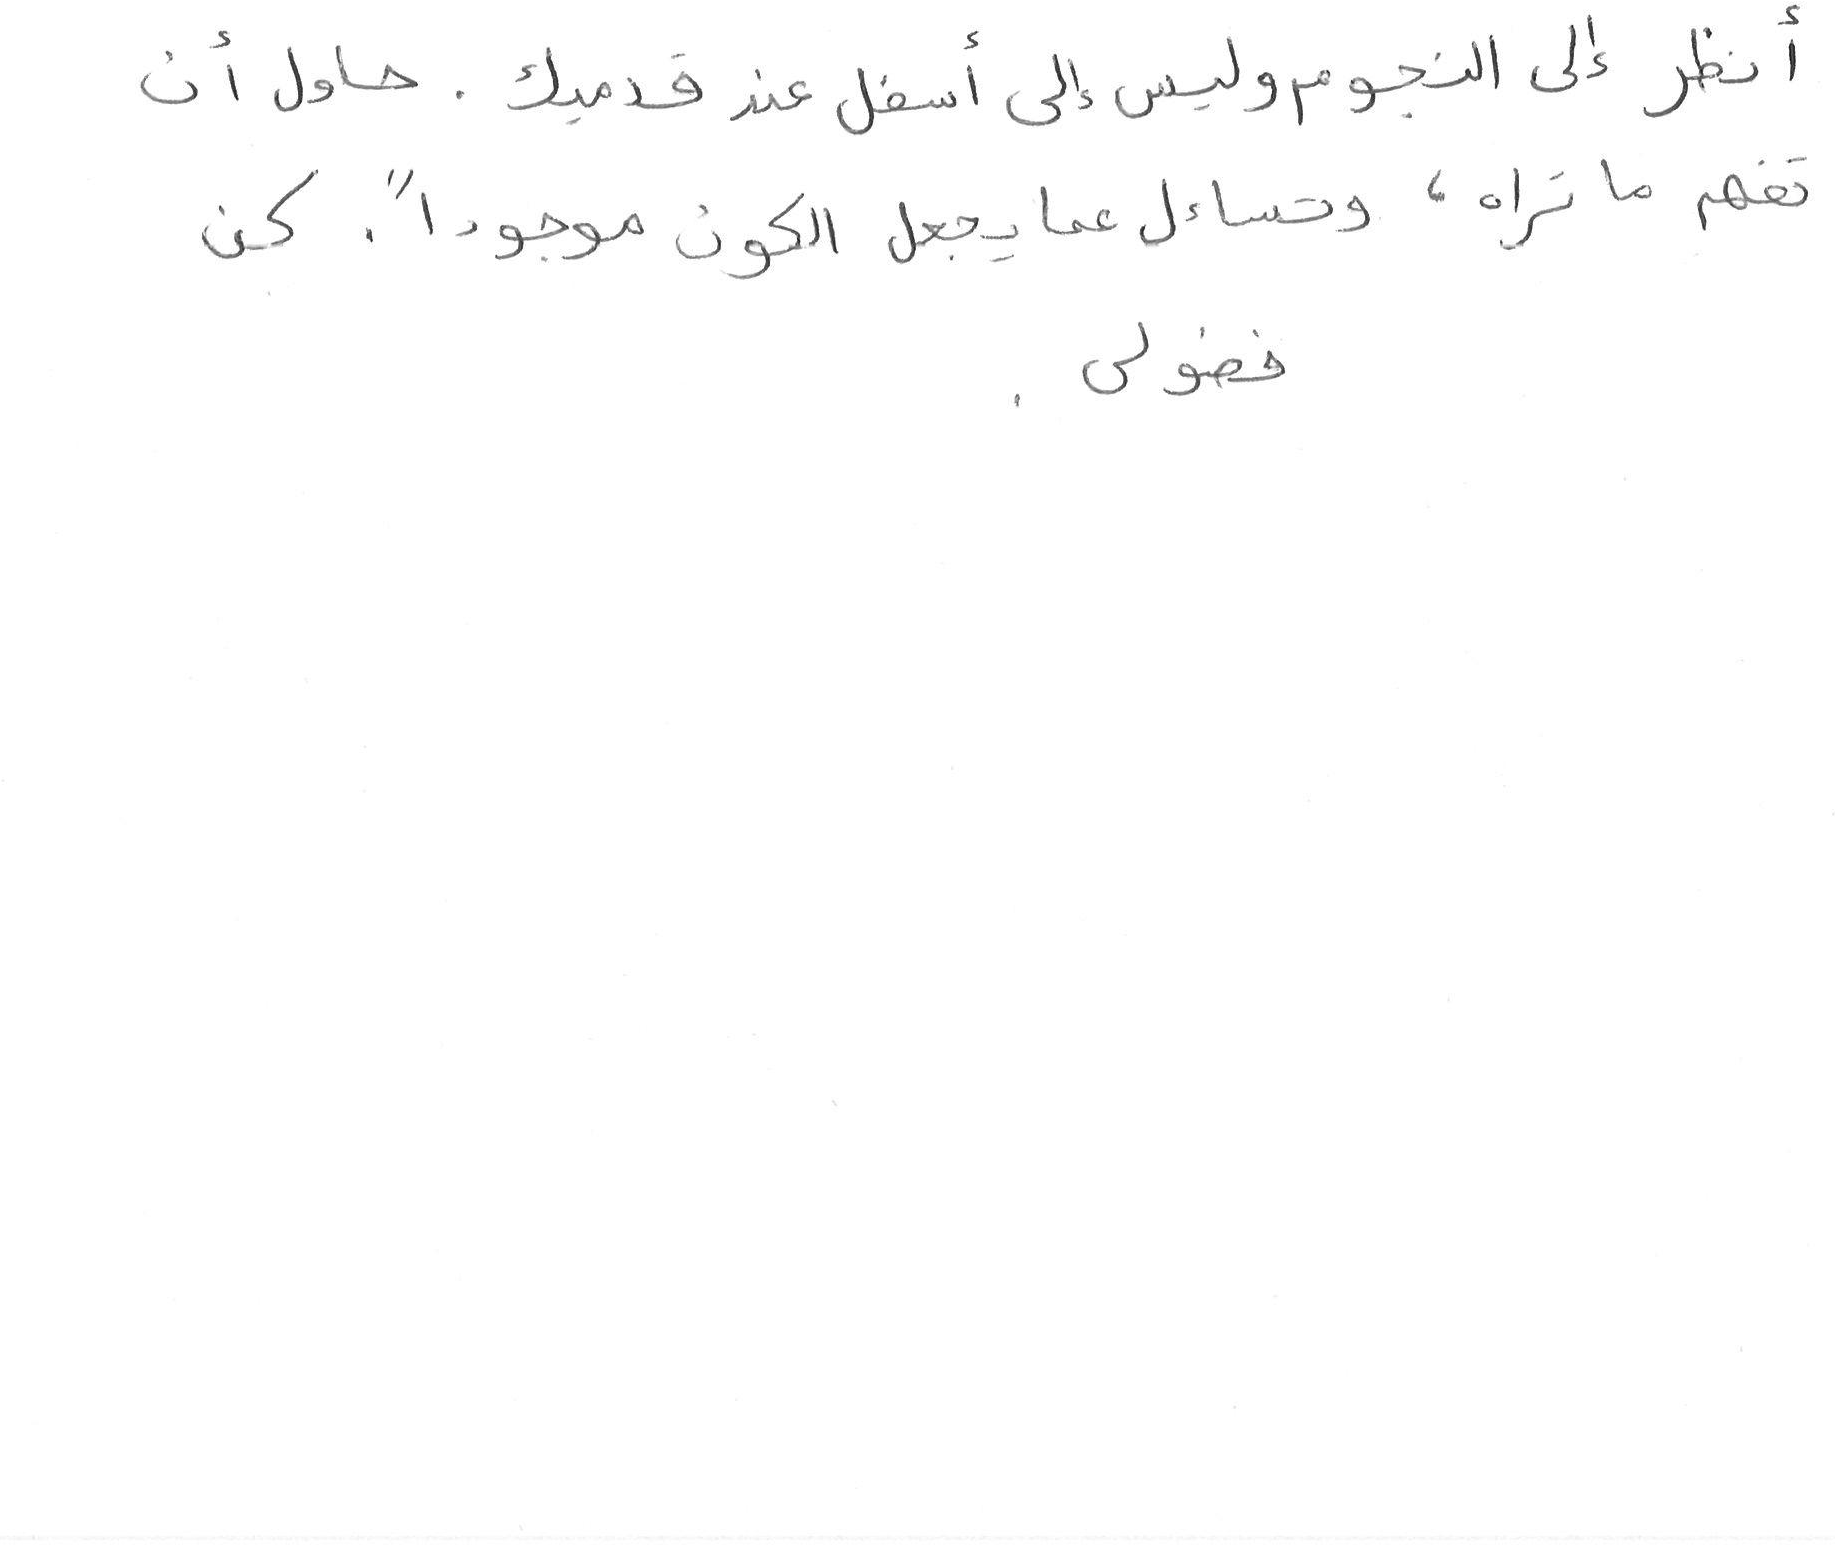 أنظر إلى النجوم وليس إلى أسفل عند قدميك . حاول أن
تفهم ما تراه ، وتساءل عما يجعل الكون موجوداً . كن
فضولى .